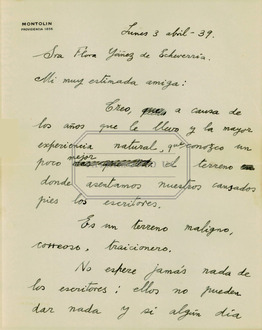 MONTOLIN
PROVIDENCIA 1030
Lunes 3 abril - 39.
Sra Flora Yáñez de Echeverría.
Mi muy estimada amiga:
Creo, que, a causa de
los años que le llevo y la mayor
experiencia natural, que conozco un
poco mejor el terreno
donde asentamos nuestros cansados
pies los escritores.
Es un terreno maligno,
correoso, traicionero.
No espere jamás nada de
los escritores; ellos no pueden
dar nada y si algún día